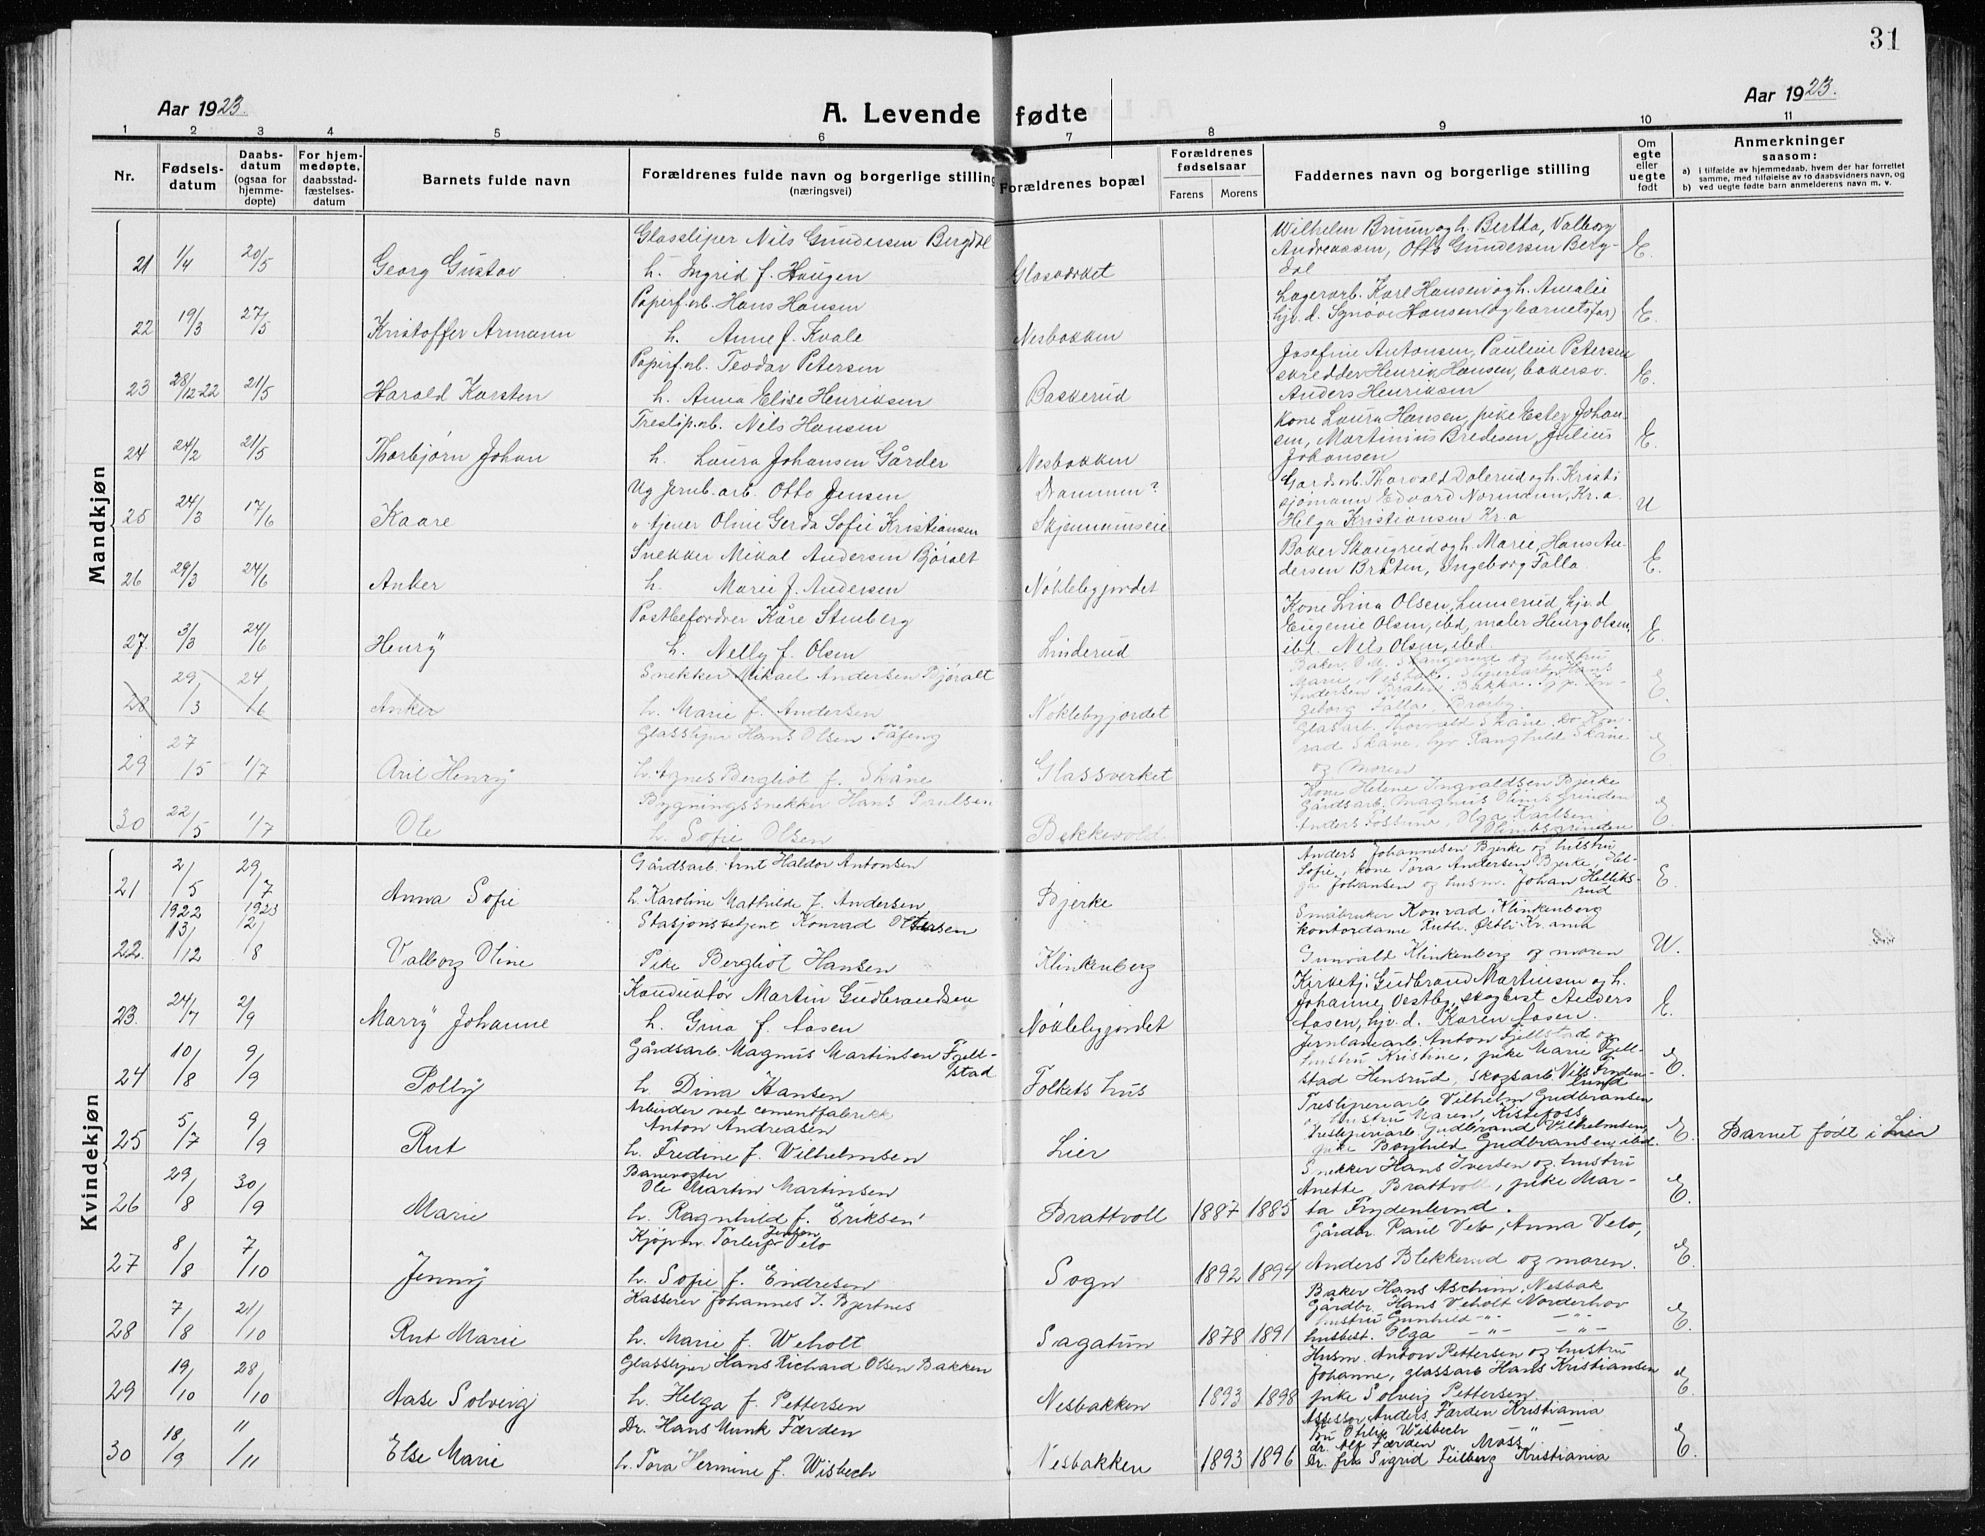 31
Aar 1923.
A. Levende fødte
Aar 1923.
1 2 3 4 5 6 7 8 9 10 11
Nr.
Fødsels-
datum
Daabs-
datum
(ogsaa for
hjemme-
døpte)
For hjem-
medøpte,
daabsstad-
fæstelses-
datum
Barnets fulde navn
Forældrenes fulde navn og borgerlige stilling
(næringsvei)
Forældrenes bopæl
Forældrenes
fødselsaar
Farens Morens
Faddernes navn og borgerlige stilling
Om
egte
eller
uegte
født
Anmerkninger
saasom:
a) i tilfælde av hjemmedaab, hvem der har forrettet
samme, med tilføielse av to daabsvidners navn, og
b) ved uegte fødte barn anmelderens navn m. v.
Mandkjøn
21 1/4 20/5 Georg Gustav
Glassliper Nils Gundersen Bergdal
h. Ingrid f. Haugen
Glasværket
Wilhelm Bruun og h. Bertha, Valborg
Andreassen, Otto Gundersen Berg-
dal
E.
22 19/3 27/5 Kristoffer Armann
Papirf.arb. Hans Hansen
h. Anne f. Kvale
Nesbakken
Lagerarb. Karl Hansen og h. Amalie
hjv. d. Synøve Hansen (og barnets far)
E.
23 28/12-22 21/5 Harald Karsten
Papirf.arb. Teodor Petersen
h. Anna Elise Henriksen
Baskerud
Josefine Antonsen, Pauline Petersen
skredder Henrik Hansen, bakersv.
Anders Henriksen
E.
24 24/2 21/5 Thorbjørn Johan
Treslip.arb. Nils Hansen
h. Laura Johansen Gårder
Nesbakken
Kone Laura Hansen, pike Ester Johan-
sen, Martinius Bredesen, Julius
Johansen
E.
25 24/3 17/6 Kaare
Ug. Jernb.arb. Otto Jensen
" tjener Oline Gerda Sofie Kristiansen
Drammen?
Skjennumseie
Gardsarb. Thorvald Dalerud og h. Kristi
sjømann Edvard Normann, Kr.a.
Helga Kristiansen Kr.a
U
26 29/3 24/6 Anker
Snekker Mikal Andersen Bjøralt
h. Marie f. Andersen
Nøklebyjordet
Baker Skaugrud og h. Marie, Hans An-
dersen Bråten, Ingeborg Falla
E.
27 3/3 24/6 Henry
Postbefordrer Kåre Stenberg
h. Nelly f. Olsen
Linderud
Kone Lina Olsen, Lunnerud, hjv. d
Eugenie Olsen, ibd, maler Henry Olsen,
ibd. Nils Olsen, ibd.
E.
28 29/3 24/6 Anker
Snekker Mikael Andersen Bjøralt
h. Marie f. Andersen
Nøklebyjordet
Baker O.M. Skaugerud og hustru
Marie, Nesbak. Sliperiarb. Hans
Andersen Bråten Bakka.
geborg Falla, Brørby.
E.
29 27/5 1/7 Aril Henry
Glassliper Hans Olsen Fåfeng
h. Agnes Bergliot f. Skåne
Glassverket
Glasarb. Thorvald Skåne. Do Kon-
rad Skåne, hjv Ranghild Skåne
og moren
E.
30 22/5 1/7 Ole
Bygningssnekker Hans Paulsen
h. Sofie Olsen
Bekkevold
Kone Helene Ingvaldsen Bjerke
Gårdsarb. Magnus Olimsgrinden
Anders Fossum, Olga Karlsen
Olimbsgrinden
E.
Kvindekjøn
21 2/5 29/7 Anna Sofie
Gårdsarb. Arnt Haldor Antonsen
h. Karoline Mathilde f. Andersen
Bjerke
Anders Johannesen Bjerke og hustru
Sofie, kone Tora Andersen Bjerke, Hel-
ga Johansen og husm. Johan Helliks-
rud
E.
22. 1922 13/12 1923 12/8 Valborg Oline
Stasjonsbetjent Konrad Ottersen
Pike Bergliot Hansen
Klinkenberg
Småbruker Konrad Klinkenberg
kontordame Ruth. Østli Kr.ania
Gunvald Klinkenberg og moren
U.
23. 24/7 2/9 Marry Johanne
Konduktør Martin Gudbrandsen
h. Gina f. Aasen
Nøklebyjordet
Kirketj. Gudbrand Martinsen og h.
Johanne Vestby, skogbest Anders
Aasen, hjv. d. Karen Aasen.
E.
24 10/8 9/9 Polly
Gårdsarb. Magnus Martinsen Fjeld-
stad
h. Dina Hansen
Folkets hus
Jernbanearb. Anton Fjellstad og
hustru Kristine, pike Marie Fjell-
stad Hensrud, skogsarb. Nils Fryden-
lund
E.
25 5/7 9/9 Rut
Arbeider ved cementfabrikk
Anton Andreasen
h. Fredine f. Vilhelmsen
Lier
Tresliperiarb Vilhelm Gudbransen
og hustru Maren, Kistefoss,
Tresliperiarb. Gudbrand Vilhelmsen,
pike Borghild Gudbransen, ibd.
E.
Barnet født i Lier
26 29/8 30/9 Marie
Banevogter
Ole Martin Martinsen
h. Ragnhild f. Eriksen
Brattvoll 1887 1885
Snekker Hans Iversen og hustru
Anette, Brattvoll, pike Mar-
ta Frydenlund.
E.
27 8/8 7/10 Jenny
Kjøpm. Torleif Jensen Velo
h. Sofie f. Endresen
Sogn 1892 1894
Gårdbr. Paul Velo, Anna Velo,
Anders Blekkerud og moren.
E.
28 7/8 21/10 Rut Marie
Kasserer Johannes J. Bjertnes
h. Marie f. Weholt
Sagatun 1878 1891
Baker Hans Aschim, Nesbak
Gårdbr. Hans Veholt Norderhov
hustru Gunhild -"- -"-
husbest. Olga -"- -"-
E.
29 19/10 28/10 Aase Solveig
Glassliper Hans Richard Olsen Bakken
h. Helga f. Pettersen
Nesbakken 1893 1898
Husm. Anton Pettersen og hustru
Johanne, glassarb Hans Kristiansen
pike Solveig Pettersen.
E
30 18/9 11/11 Else Marie
Dr. Hans Munk Færden
h. Tora Hermine f. Wisbech
Nesbakken 1893 1896
Assessor Anders Færden Kristiania
Fru Otilie Wisbech
dr. Alf Færden Moss
Dr. frk Sigrid Feilberg Kristiania
E.